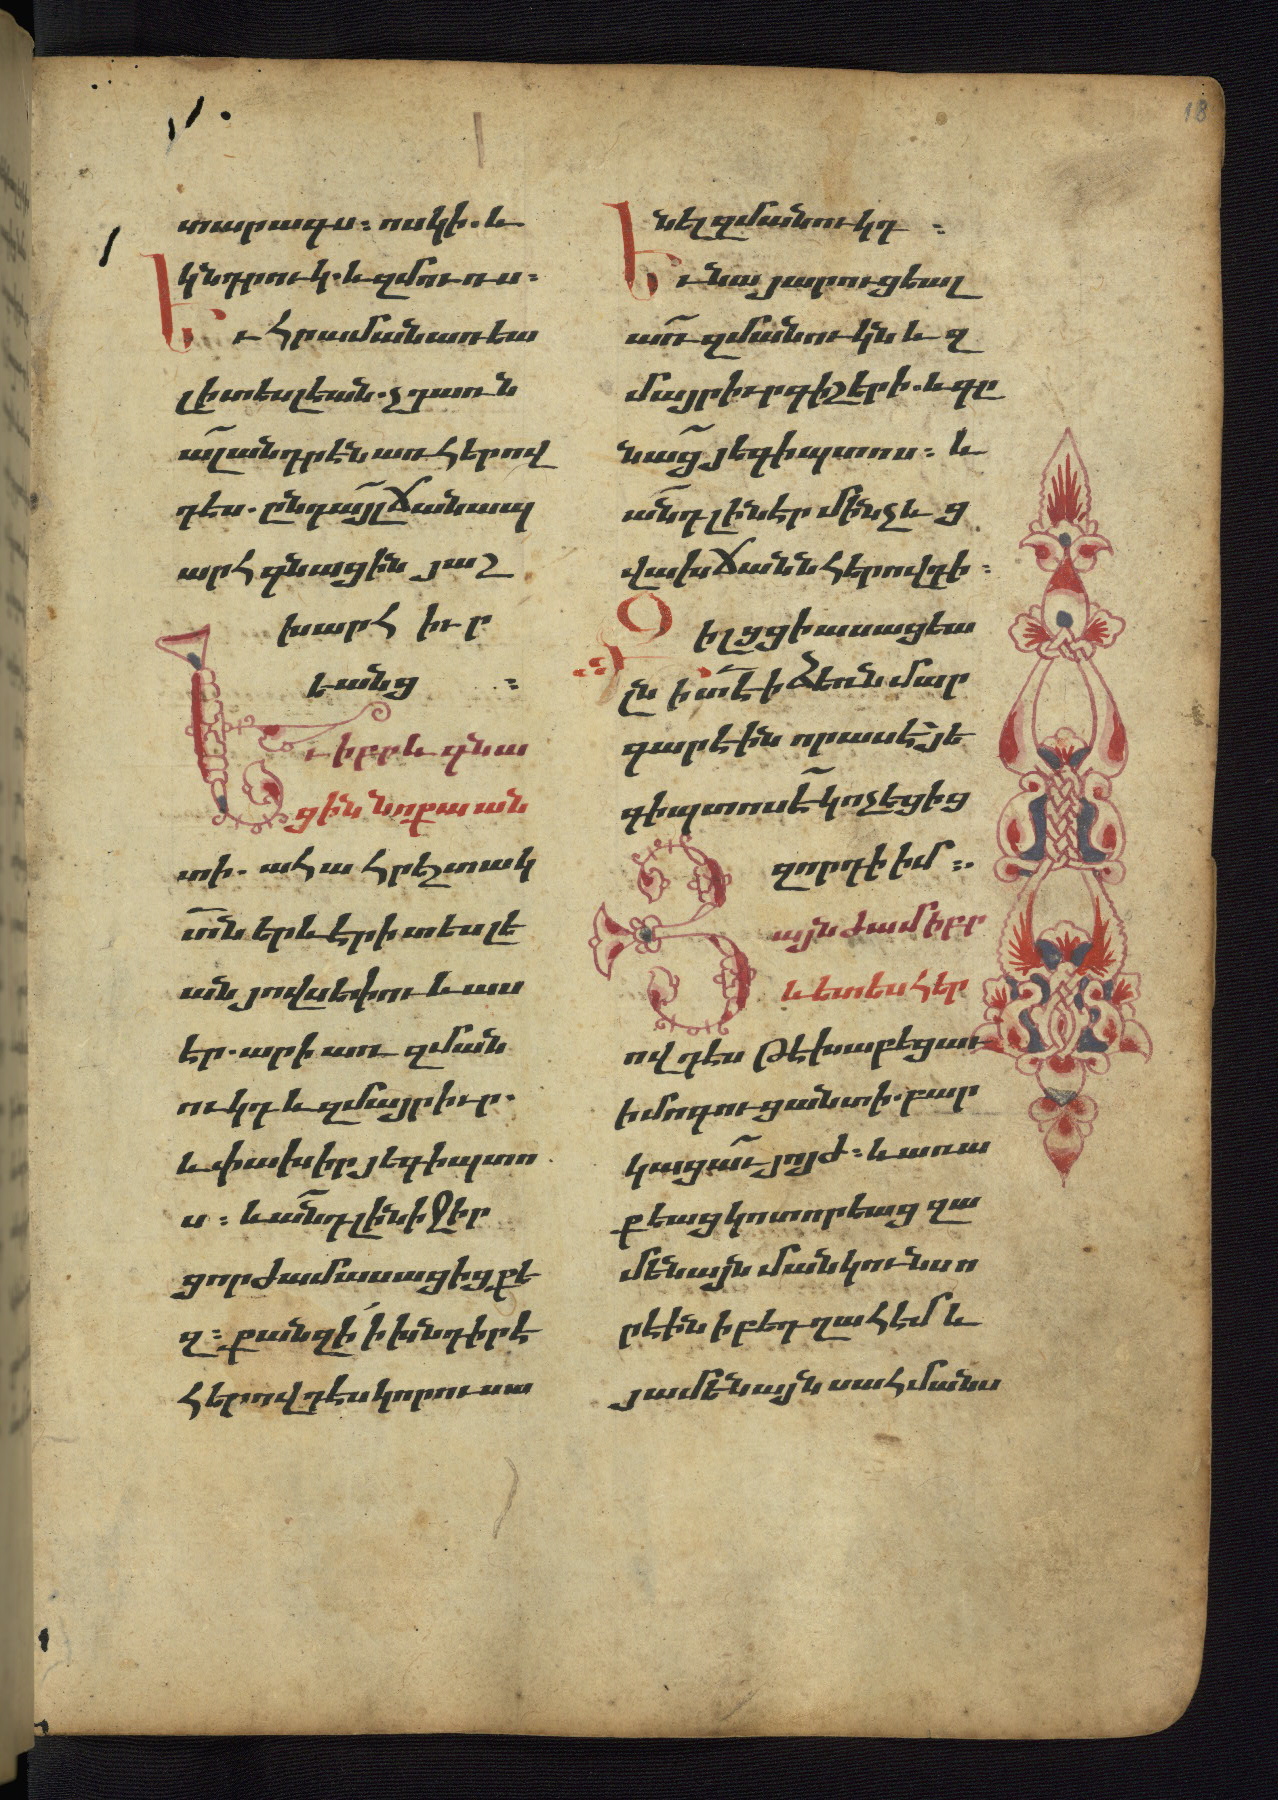 18
տարագս։ ոսկի. և
կնդրուկ. և զմուռս։
Եւ հրաման առեա
լ ի տեսլեան. չդառն
ալ անդրէն առ հերով
դէս. ընդ այլ ճանապ
արհ գնացին յաշ
խարհ իւր
եանց ։
Եւ իբրև գնա
ցին նոքա ան
տի. ահա հրեշտակ
տն երևէր ի տեսլե
ան յովսեփու և աս
եր. արի առ զման
ուկդ և զմայր իւր.
և փախիր յեգիպտո
ս։ և անդ լինիջիր
ցորժամ ասացից քե
զ։ քանզի ի խնդիր է
հերովդէս կորուսա
նել զմանուկդ ։
Եւ նա յարուցեալ
առ զմանուկն և զ
մայր իւր գիշերի. և գը
նաց յեգիպտոս։ և
անդ լինէր մինչև ց
վախճանն հերովդի։
Զի լցցի ասացեա
լն ի տէ ի ձեռն մար
գարէին որ ասէ յե
գիպտոսէ կոչեցից
զորդի իմ ։.
Յայնժամ իբր
և ետես հեր
ովդէս թէ խաբեցաւ
ի մոգուցն անտի. բար
կացաւ յոյժ։ և առա
քեաց կոտորեաց զա
մենայն մանկունս ո
ր էին ի բեդղահեմ և
յամենայն սահմանս